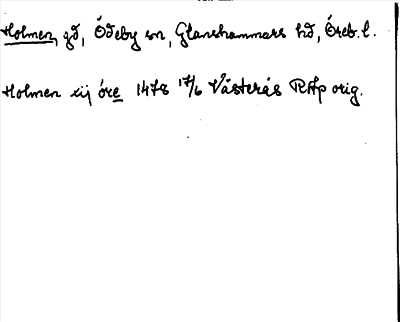 Holmen, gd, Ödeby sn, Glanshammars hd, Öreb. l.
Holmen xij öre 1478 17/6 Västerås RAp orig.